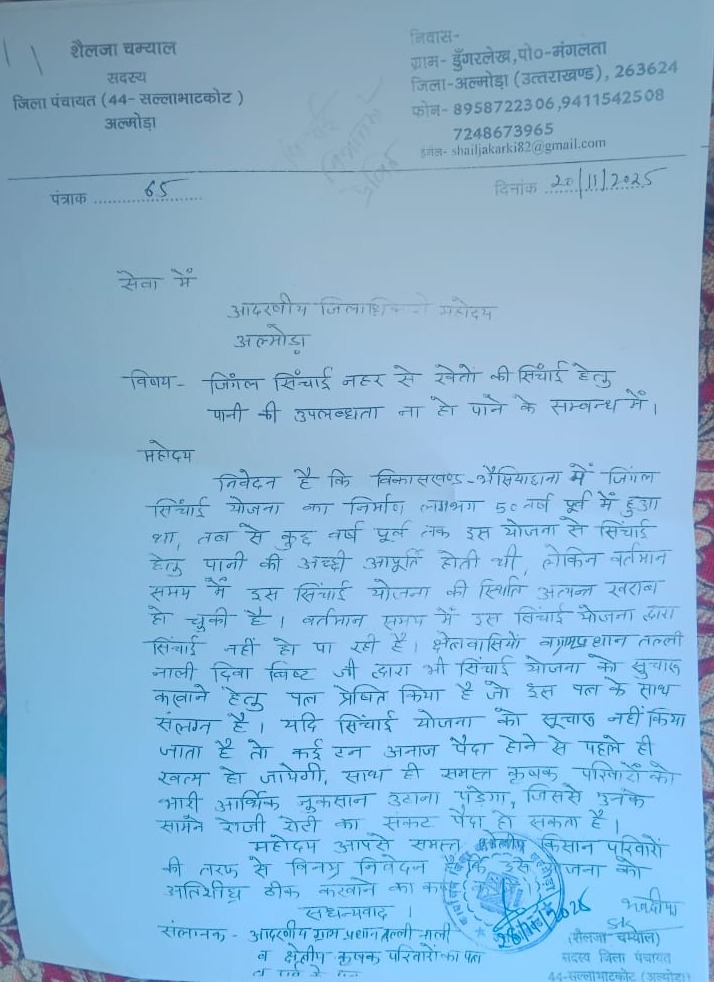 शैलजा चम्याल
सदस्य
जिला पंचायत (44- सल्लाभाटकोट )
अल्मोड़ा
निवास-
ग्राम- डुँगरलेख,पो०-मंगलता
जिला-अल्मोड़ा (उत्तराखण्ड), 263624
फोन- 8958722306,9411542508
7248673965
इमेल- shailjakarki82@gmail.com
पंत्राक 65
दिनांक 20/11/2025
सेवा में
आदरणीय जिलाधिकारी महोदय
अल्मोड़ा
विषय- जिंगल सिंचाई नहर से खेतो की सिंचाई हेतु
पानी की उपलब्धता ना हो पाने के सम्बन्ध में।
महोदय
निवेदन है कि विकासखण्ड-भैसियाछाना में जिंगल
सिंचाई योजना का निर्माण लगभग 50 वर्ष पूर्व में हुआ
था, तब से कुछ वर्ष पूर्व तक इस योजना से सिंचाई
हेतु पानी की अच्छी आपूर्ति होती थी, लेकिन वर्तमान
समय में इस सिंचाई योजना की स्थिति अत्यन्त खराब
हो चुकी है। वर्तमान समय में इस सिंचाई योजना द्वारा
सिंचाई नहीं हो पा रही है। क्षेत्रवासियों व ग्रामप्रधान तल्ली
नाली दिवा बिष्ट जी द्वारा भी सिंचाई योजना को सुचारू
करवाने हेतु पत्र प्रेषित किया है जो इस पत्र के साथ
संलग्न है। यदि सिंचाई योजना को सूचारू नहीं किया
जाता है तो कई टन अनाज पैदा होने से पहले ही
खत्म हो जायेगी, साथ ही समस्त कृषक परिवारों को
भारी आर्थिक नुकसान उठाना पड़ेगा, जिससे उनके
सामने रोजी रोटी का संकट पैदा हो सकता है।
महोदय आपसे समस्त क्षेत्रीय किसान परिवारों
की तरफ से विनम्र निवेदन है कि इस योजना को
अतिशीघ्र ठीक करवाने का
सधन्यवाद।
भवदीया
संलानक- आदरणीय ग्राम प्रधान तल्ली नाली
व क्षेत्रीय कृषक परिवारों का पत्र
(शैलजा चम्याल)
सदस्य जिला पंचायत
44-सल्लाभाटकोट (अल्मोड़ा)